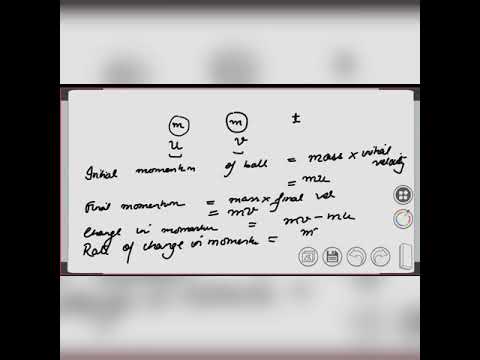 m m t
u v
Initial momentum of ball = mass x initial velocity
= mu
Final momentum = mass x final vel
= mv
Change in momentum = mv - mu
Rate of change in momentum = m